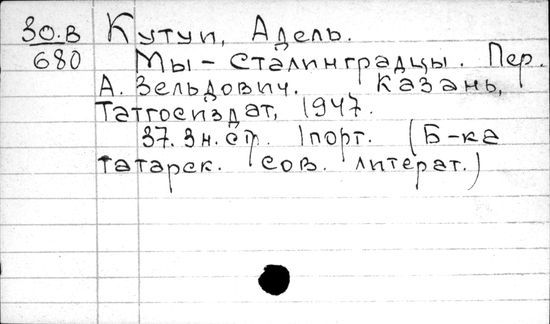 30.В Кутуп, Адель.
680 Мы - Сталинградцы. Пер.
А. Зельдович. Казань,
Татгосиздат, 1947.
37. 3н. ст. 1порт. (Б-ка
татарск. сов. литерат.)